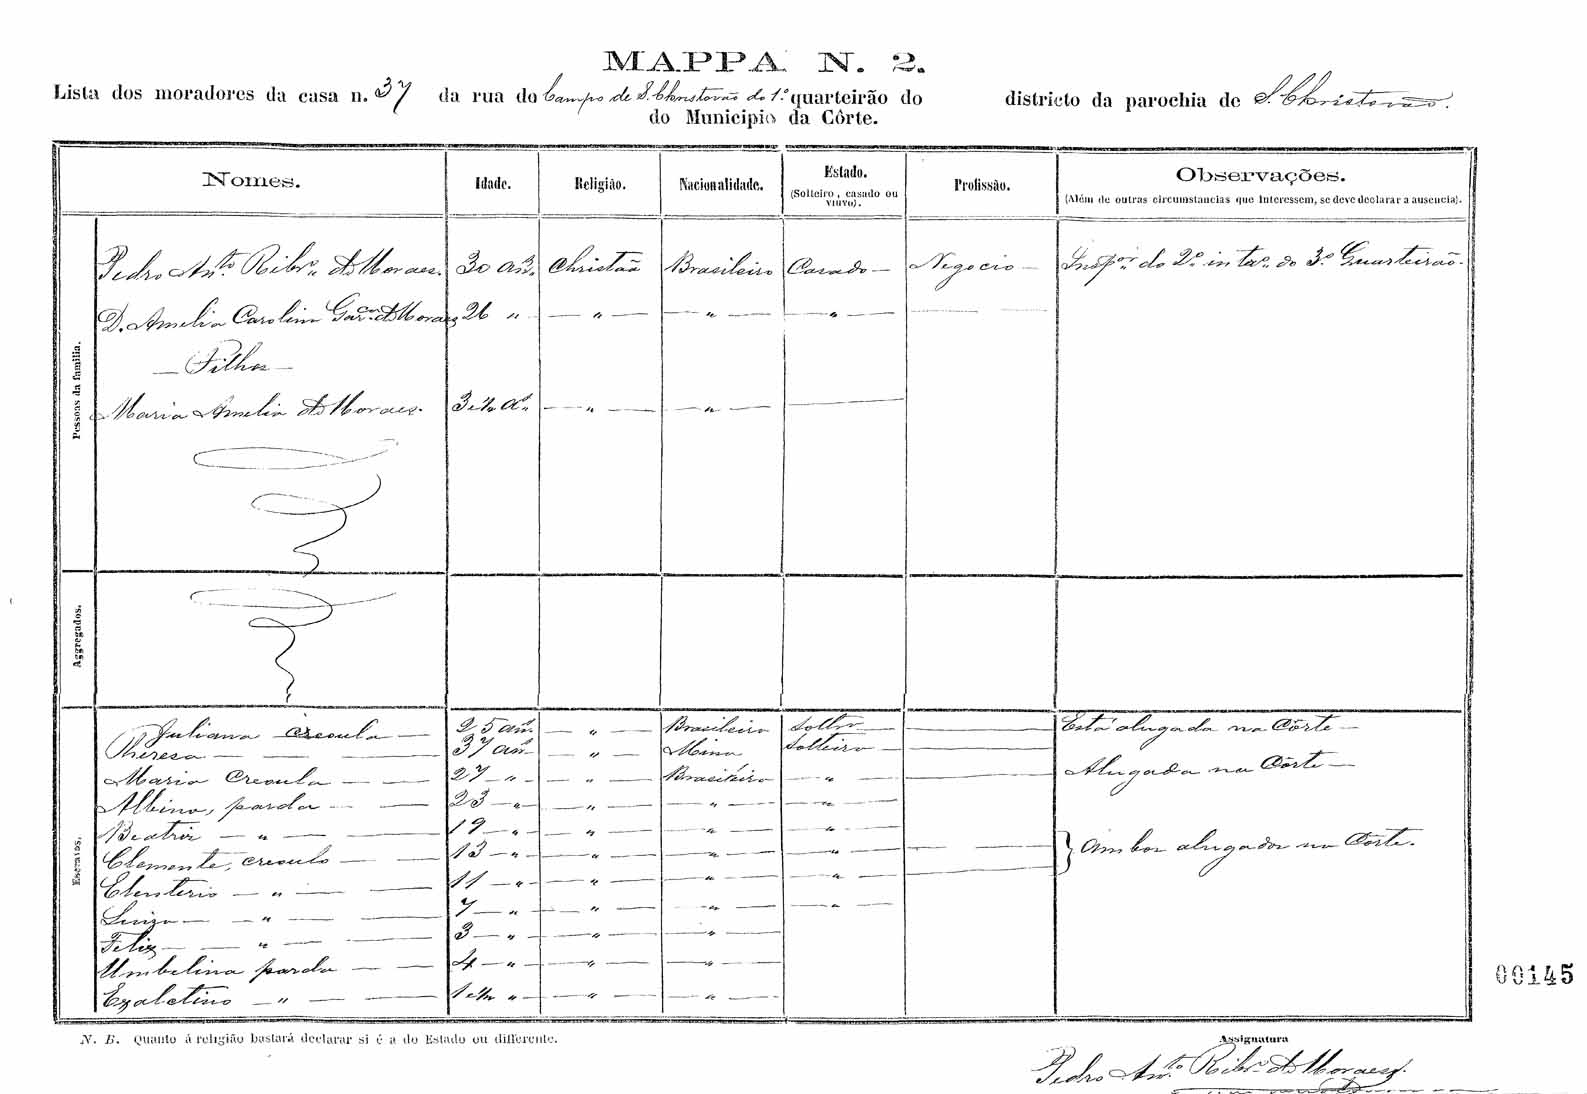 MAPPA N. 2.
Lista dos moradores da casa n. 37 da rua do Campo de S. Christovão do 1.º quarteirão do districto da parochia de S. Christovão.
do Municipio da Côrte.
Nomes. Idade. Religião. Nacionalidade. Estado. (Solteiro, casado ou viuvo). Profissão. Observações. (Além de outras circumstancias que interessem, se deve declarar a ausencia).
Pessoas da familia.
Pedro Anto Ribro de Moraes. 30 ans. Christaã Brasileiro Casado — Negocio — Inspor do 2º in tao do 3º Quarteirão.
D. Amelia Carolina de Moraes 26 " — " — — " — — " —
— Filha —
Maria Amelia de Moraes. — " — — " —
Aggregados.
Escravos.
Juliana creoula — 25 an. — " — Brasileiro Soltro — Está alugada na Côrte —
Thereza — — 37 an — " — Mina Solteiro —
Maria Creoula — — 27 — " — " — Brasileiro — " — Alugada na Côrte —
Albina, parda — — 23 — " — " — — " — — " —
Beatriz — " — — 19 — " — " — — " — — " —
Clemente, creoulo — 13 — " — " — — " — — " — } Ambos alugados na Côrte.
Eleuterio — " — — 11 — " — " — — " — — " —
Luiza — — " — — 7 — " — " — — " — — " —
Feliz — — " — — 3 — " — " — — " —
Umbelina parda — — 4 — " — " — — " —
Ezaletino — " — — " — " — — " —
00145
N. B. Quanto á religião bastará declarar si é a do Estado ou differente.
Assignatura
Pedro Anto Ribro de Moraes.